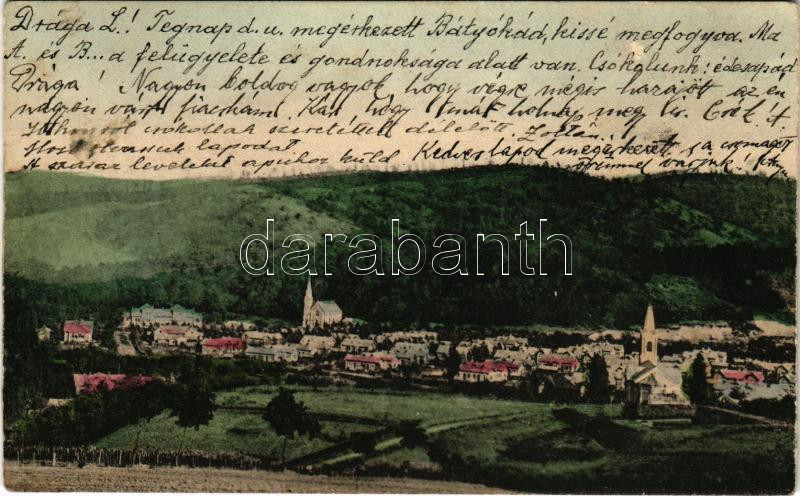 Drága L.! Tegnap d.u. megérkezett Bátyókád, kissé megfogyva. Ma
A. és B...a felügyelete és gondnoksága alatt van. Csókolunk: édesapád
Drága! Nagyon boldog vagyok, hogy végre mégis hazajött az én
nagyon várt fiacskám. Kár, hogy már holnap meg is. Csók! A.
csókollak szeretettel délelőtt. Zoltán.
lapodat
A száraz leveleket apuhoz küld Kedves lapod megérkezett s a csomagot
vagyuk!
darabanth